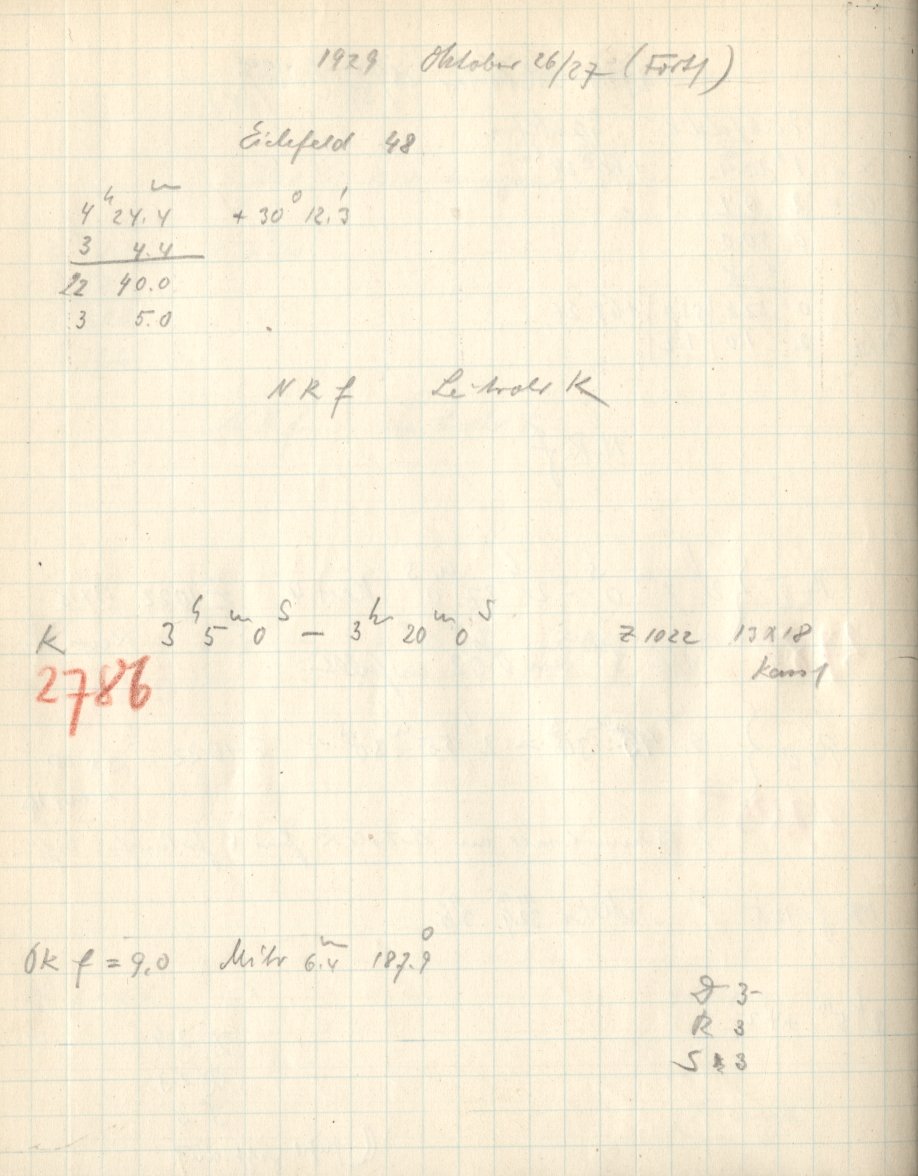 1929 Oktober 26/27 (Forts)
Eichfeld 48
4ʰ 24.4ᵐ + 30° 12.'3
3 4.4
22 40.0
3 5.0
N R f Leitrohr K
K 3ʰ 5ᵐ 0ˢ – 3ʰ 20ᵐ 0ˢ Z 1022 13x18
2786
Ok f = 9,0 Mikr 187.9°
D 3-
R 3
S 3